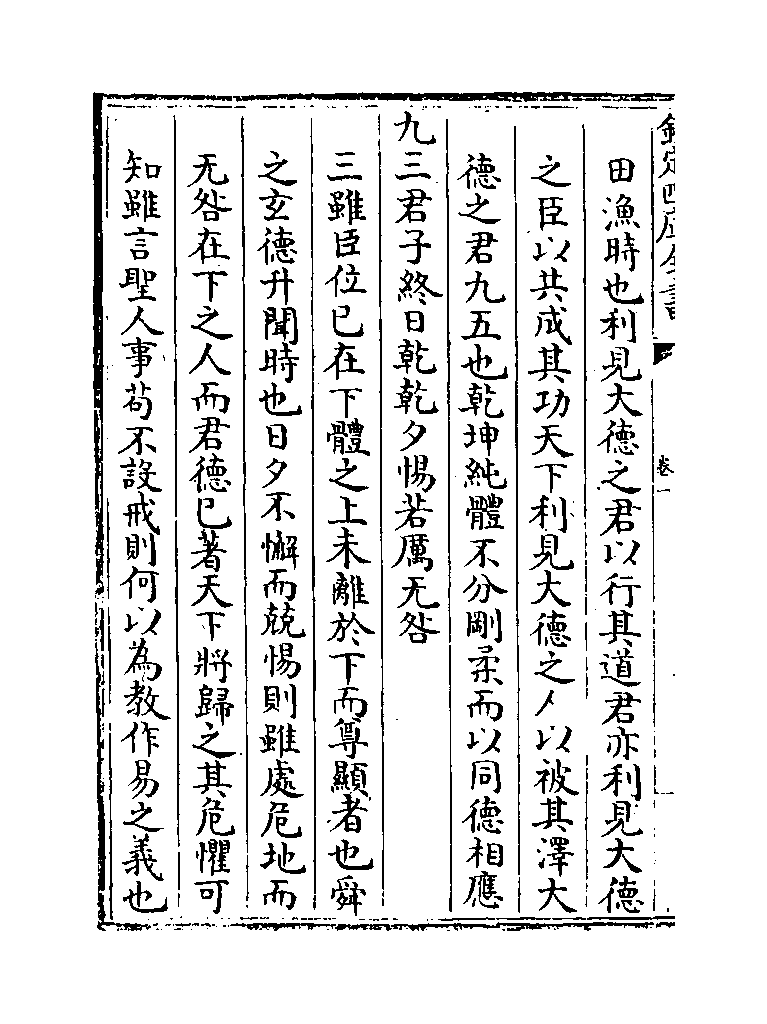 欽定四庫全書
卷一
田漁時也利見大德之君以行其道君亦利見大德
之臣以共成其功天下利見大德之人以被其澤大
德之君九五也乾坤純體不分剛柔而以同德相應
九三君子終日乾乾夕惕若厲无咎
三雖臣位已在下體之上未離於下而尊顯者也舜
之玄德升聞時也日夕不懈而兢惕則雖處危地而
无咎在下之人而君德已著天下將歸之其危懼可
知雖言聖人事苟不設戒則何以為教作易之義也